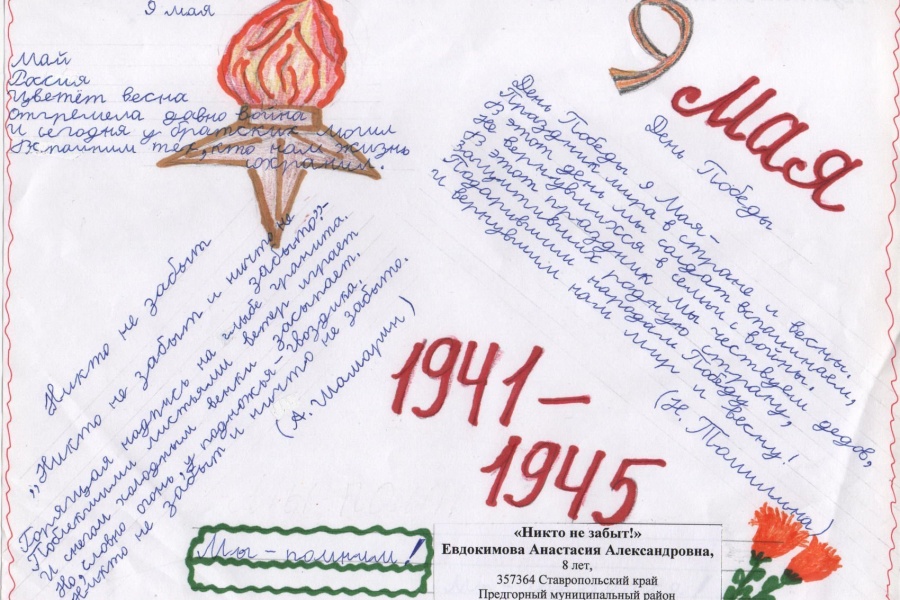 9 мая
Май
Россия
Цветёт весна
Отгремела давно война
И сегодня у братских могил
Вспомним тех, кто нам жизнь
сохранил.
9 Мая
День Победы
День Победы 9 Мая –
Праздник мира в стране и весны.
В этот день мы солдат вспоминаем,
Не вернувшихся в семьи с войны.
В этот праздник мы чествуем дедов,
Защитивших родную страну,
Подарившим народам Победу
И вернувшим нам мир и весну!
(Н. Томилина)
Никто не забыт
„Никто не забыт и ничто не
забыто" –
Горящая надпись на глыбе гранита.
Поблекшими листьями ветер играет
И снегом холодным венки засыпает.
Но, словно огонь, у подножья – гвоздика.
Никто не забыт и ничто не забыто.
(А. Шамарин)
1941 –
1945
Мы – помним!
«Никто не забыт!»
Евдокимова Анастасия Александровна,
8 лет,
357364 Ставропольский край
Предгорный муниципальный район